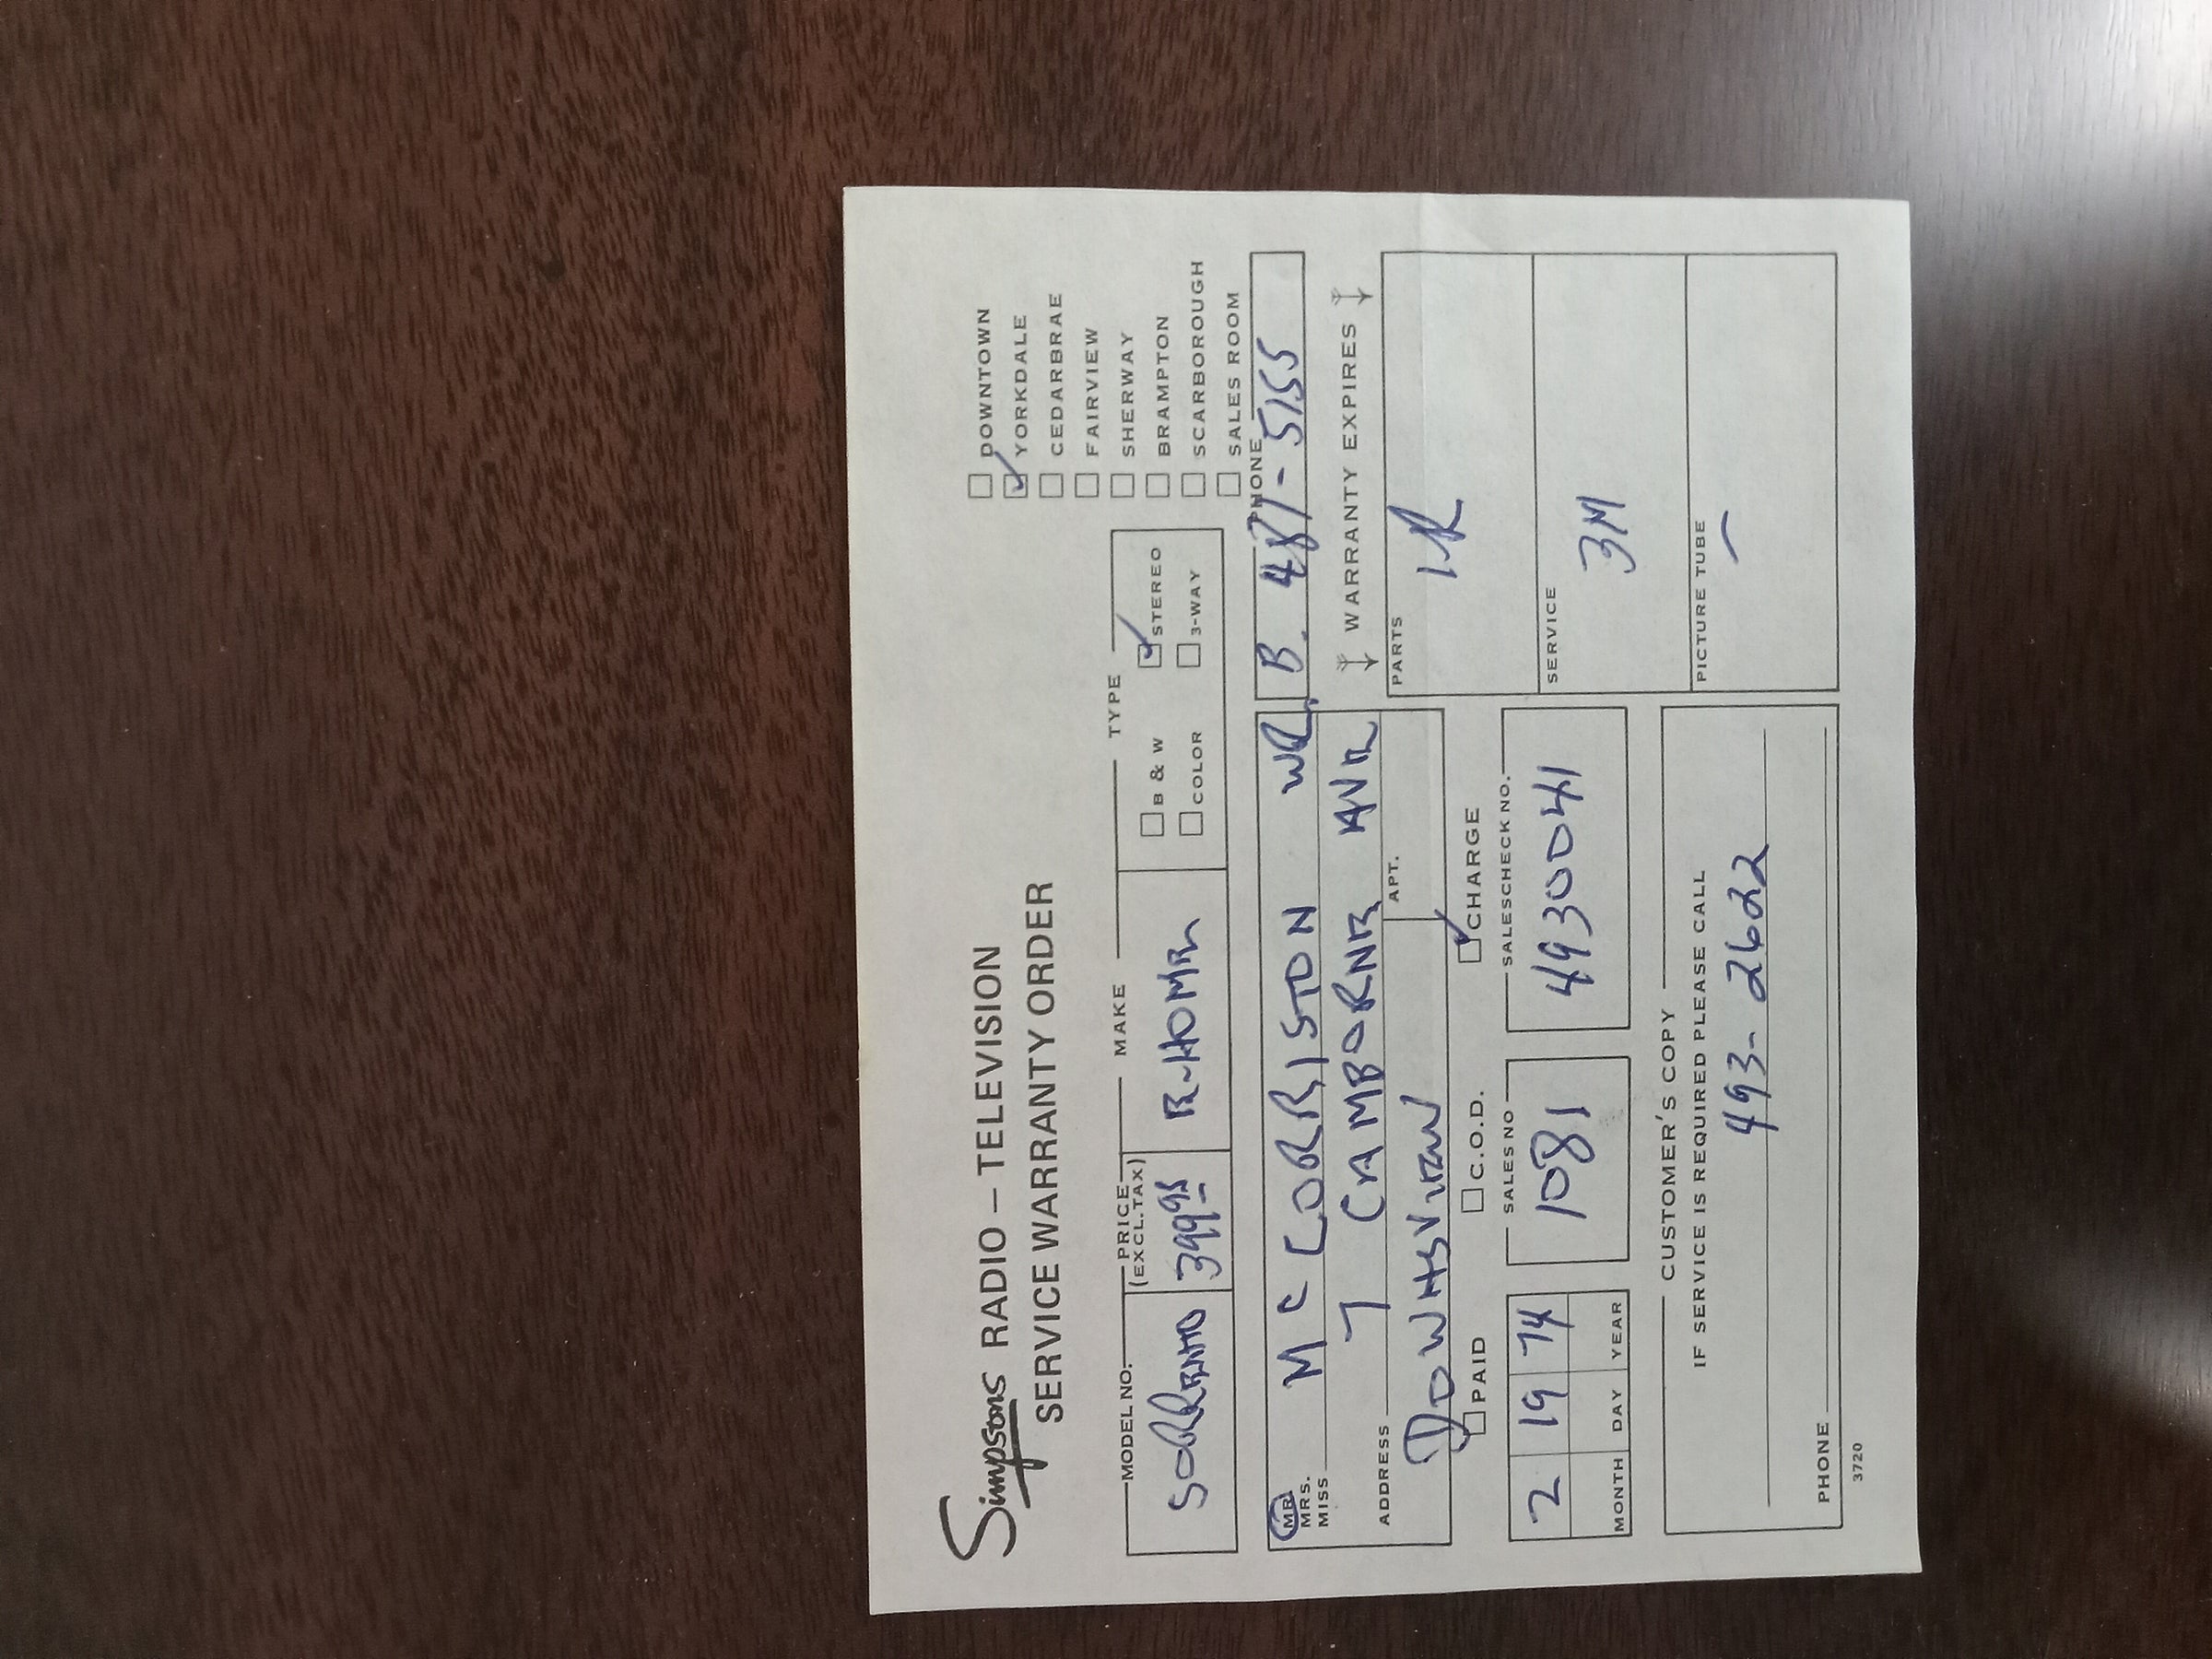 Simpsons RADIO – TELEVISION
SERVICE WARRANTY ORDER
☐ DOWNTOWN
☑ YORKDALE
☐ CEDARBRAE
☐ FAIRVIEW
☐ SHERWAY
☐ BRAMPTON
☐ SCARBOROUGH
☐ SALES ROOM
MODEL NO. PRICE (EXCL. TAX) MAKE TYPE
399 95
☐ B & W ☑ STEREO
☐ COLOR ☐ 3-WAY
MR. MRS. MISS MCCORRISTON
PHONE
B. 487-5155
ADDRESS 7 CAMBORNE AVE
DOWNSVIEW APT.
☐ PAID ☐ C.O.D. ☑ CHARGE
WARRANTY EXPIRES
PARTS
SERVICE 3M
PICTURE TUBE –
2 19 74
MONTH DAY YEAR
SALES NO 1081
SALESCHECK NO. 4930041
CUSTOMER'S COPY
IF SERVICE IS REQUIRED PLEASE CALL
493-2632
PHONE
3720